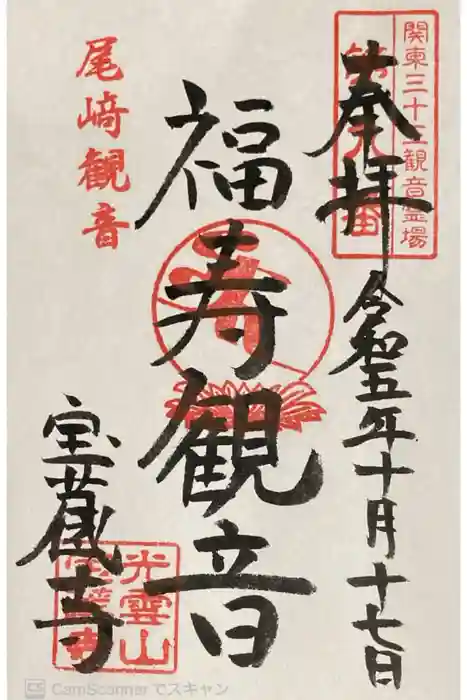 関東三十三観音霊場
奉拝
令和五年十月十七日
福寿観音
尾﨑観音
宝蔵寺
光雲山
CamScanner でスキャン